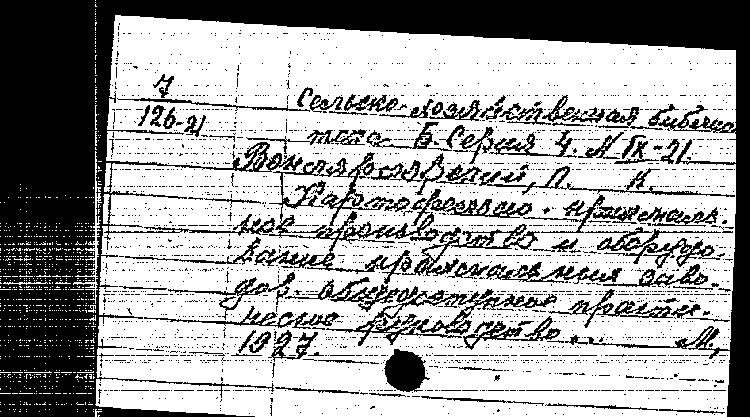 7
126-21
Сельско-хозяйственная библио
тека Б. Серия 4. N IX-21.
Вонсляроярский, П. К.
Картофельно-крахмаль
ное производство и оборудо-
вание крахмальных заво-
дов. общедоступное практи-
ческое руководство... М,
1927.